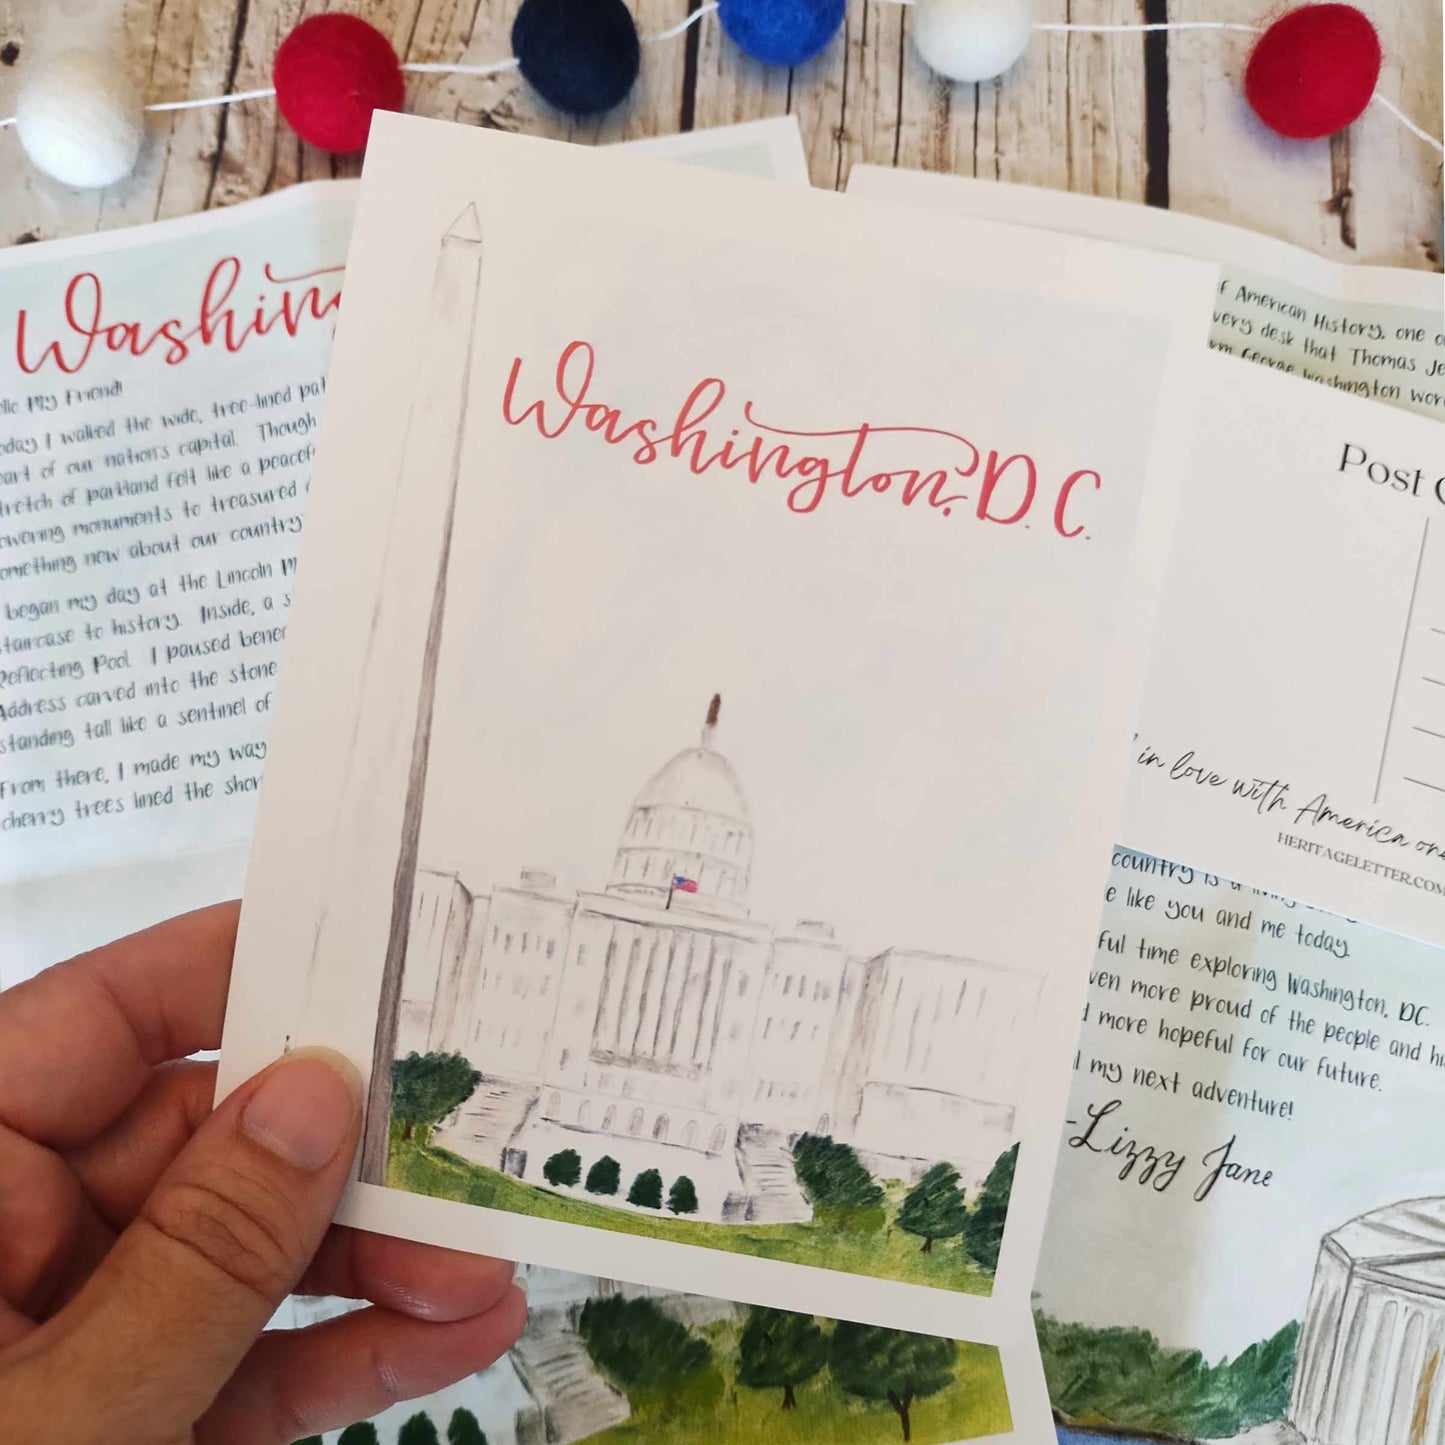 Washington, D.C.
Hello My Friend!
I walked the wide, tree-lined
of our nation's capital. Though
of parkland felt like a
monuments to treasured
new about our country
began my day at the Lincoln
to history. Inside, a
Reflecting Pool. I paused
Address carved into the stone
standing tall like a sentinel of
From there, I made my way
cherry trees lined the
American History, one
very desk that Thomas
George Washington
Post
in love with America
HERITAGELETTER.COM
country is a
like you and me today.
time exploring Washington, DC.
more proud of the people and
more hopeful for our future.
my next adventure!
-Lizzy Jane